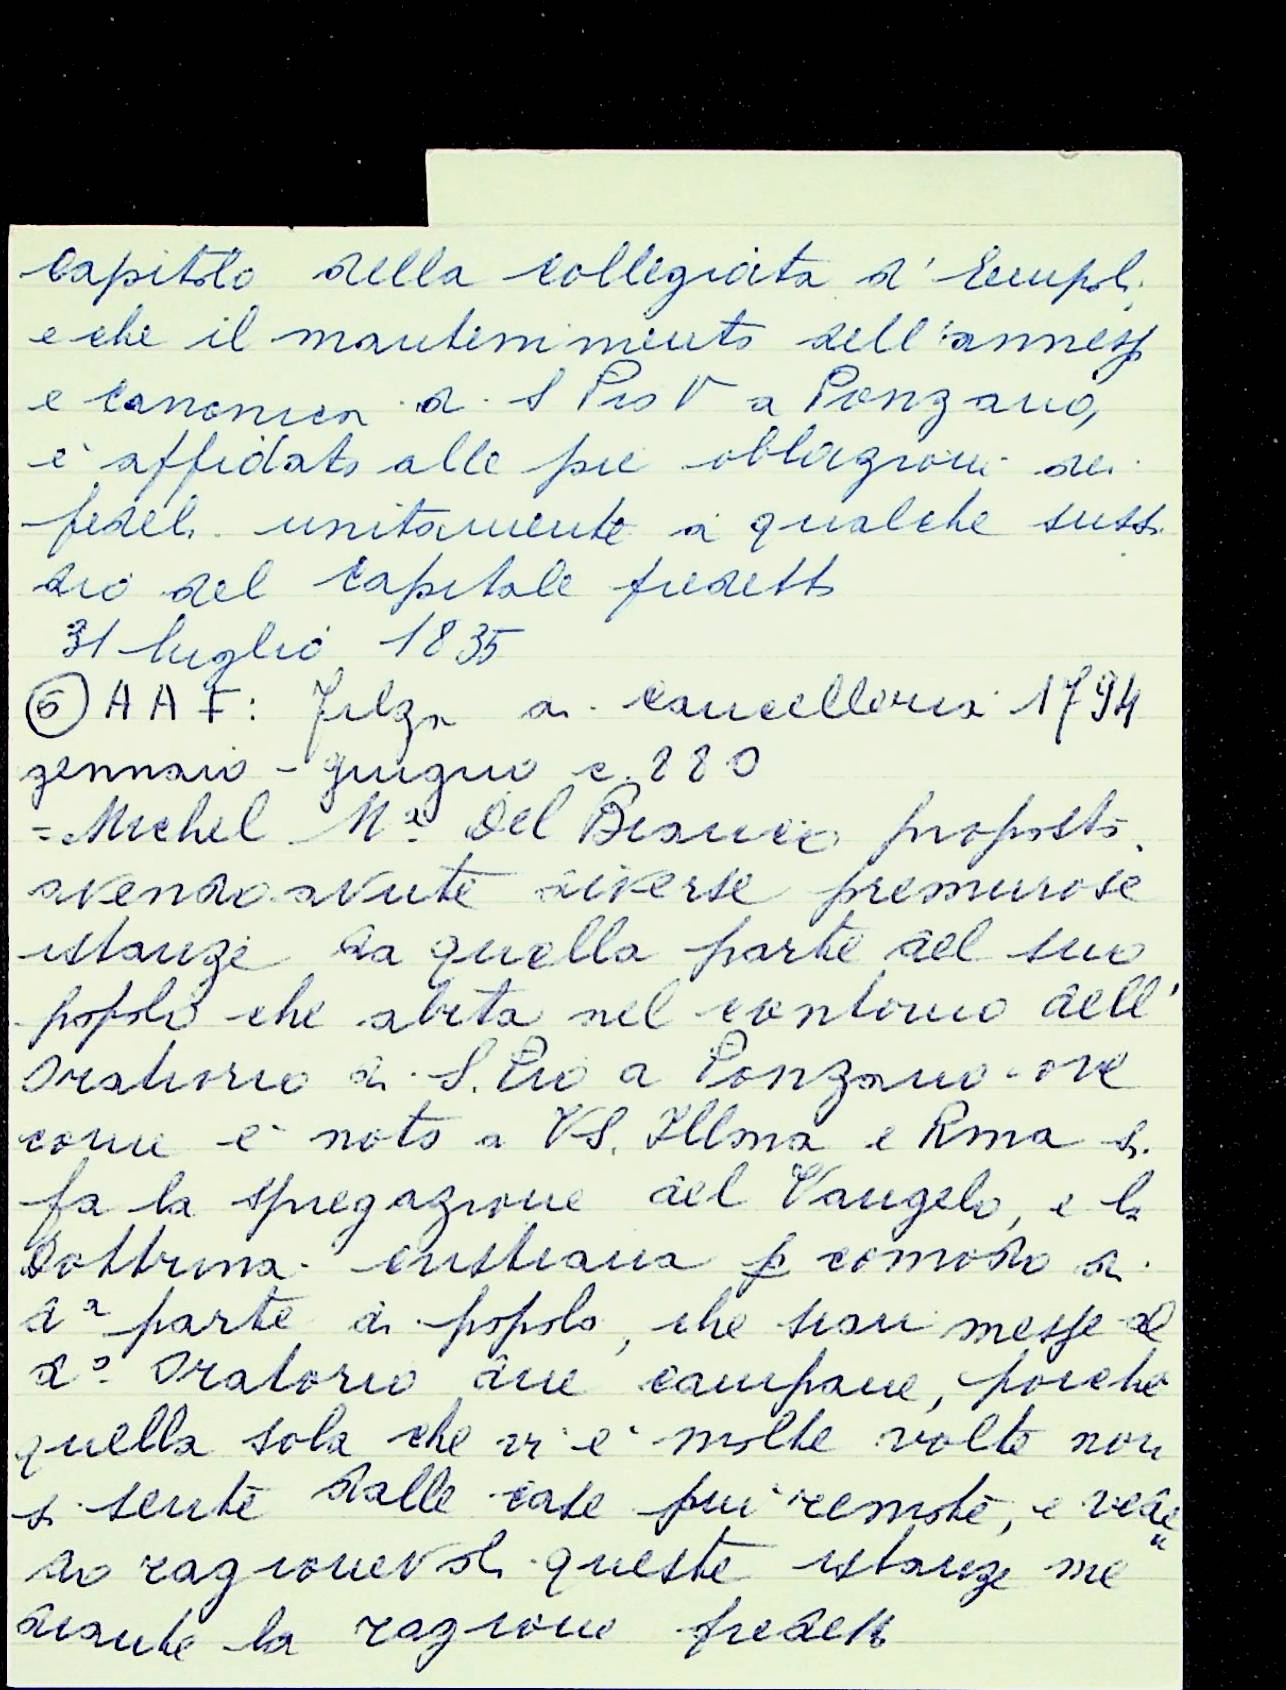 Capitolo della Collegiata d'Empoli,
e che il mantenimento dell'annessa
e canonica di S Pio V a Ponzano,
è affidato alle pie oblazioni dei
fedeli unitamente a qualche sussi
dio del Capitale predetto
31 luglio 1835
⑥ AAF: Filza di Cancelleria 1794
gennaio - giugno c. 220
= Michel Mª Del Bianco proposto,
avendo avute diverse premurose
istanze da quella parte del suo
popolo che abita nel contorno dell'
Oratorio di S. Pio a Ponzano ove
come è noto a VS. Illma e Rma si
fa la spiegazione del Vangelo, e la
Dottrina cristiana p comodo di
dª parte di popolo, che siano messe al
dº Oratorio due campane, poiché
quella sola che vi è molte volte non
si sente dalle case più remote, e veden
do ragionevoli queste istanze me"
diante la ragione predetta